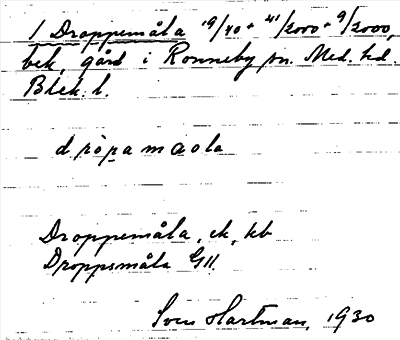 1 Droppemåla 19/40 + 41/2000 + 9/2000,
bek. gård i Ronneby sn. Med. hd.
Blek. l.
dròpamaola
Droppemåla, ek, kb
Droppsmåla GH.
Sven Hartman, 1930